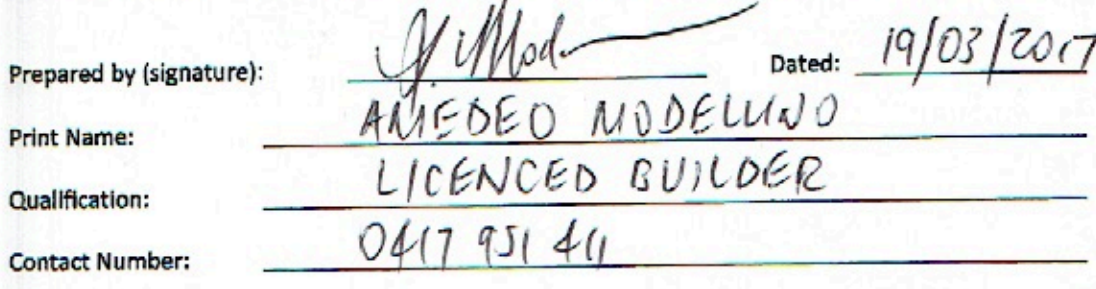 Prepared by (signature): Dated: 19/03/2017
Print Name: AMEDEO MODELLINO
Qualification: LICENCED BUILDER
Contact Number: 0417 951 411